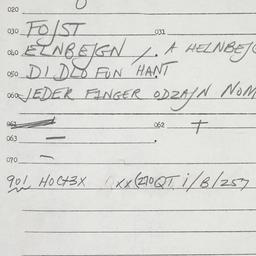 020
030 FOJST 031
040 ELNBEJGN /. A HELNBEJG
050 DI DLO FUN HANT
060 JEDER FINGER ODZAJN NOM
061 — 062 +
063 — .
070 —
901 HOC+3X XX(210QT i/B/257